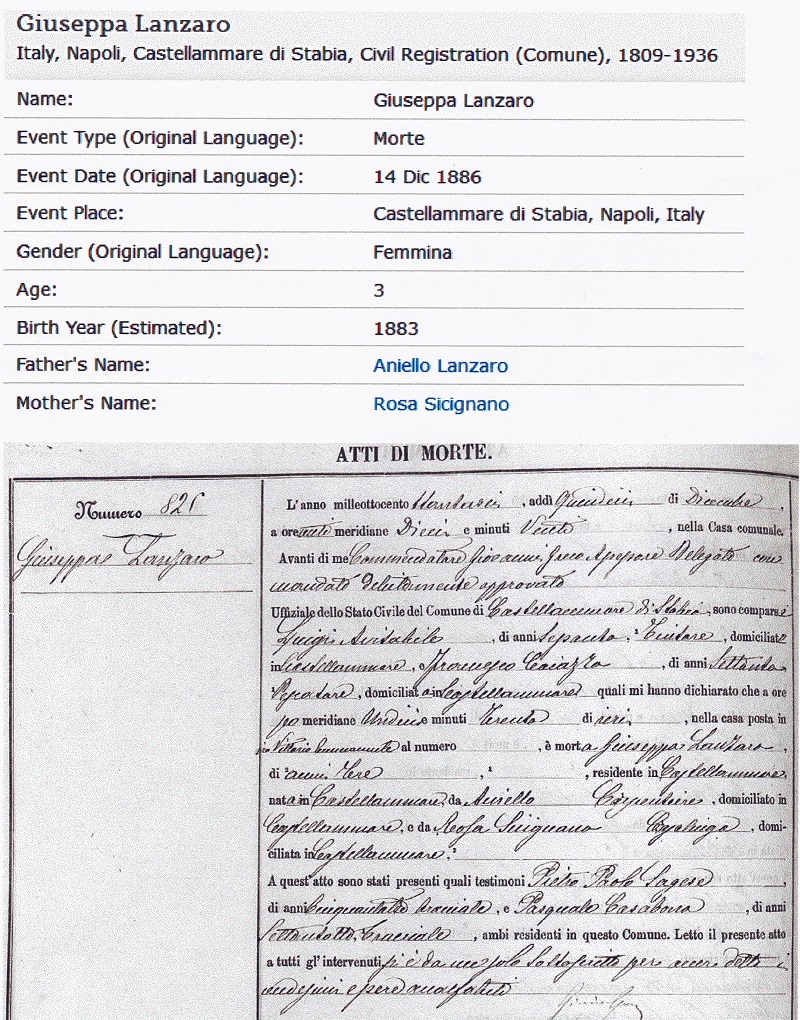 Giuseppa Lanzaro
Italy, Napoli, Castellammare di Stabia, Civil Registration (Comune), 1809-1936
Name: Giuseppa Lanzaro
Event Type (Original Language): Morte
Event Date (Original Language): 14 Dic 1886
Event Place: Castellammare di Stabia, Napoli, Italy
Gender (Original Language): Femmina
Age: 3
Birth Year (Estimated): 1883
Father's Name: Aniello Lanzaro
Mother's Name: Rosa Sicignano
ATTI DI MORTE.
Numero
Giuseppa Lanzaro
L'anno milleottocento , addì Quindici di Dicembre ,
a ore meridiane Dieci e minuti Venti , nella Casa comunale.
Avanti di me Commendatore Giovanni Greco Assessore Delegato con
mandato debitamente approvato
Uffiziale dello Stato Civile del Comune di Castellammare di Stabia, sono comparsi
Luigi Avitabile , di anni , , domiciliato
in Castellammare, e Francesco Caiazzo , di anni Settanta
, domiciliato in Castellammare quali mi hanno dichiarato che a ore
po meridiane Undici e minuti Trenta di ieri, , nella casa posta in
Vittorio Emmanuele al numero , è morta Giuseppa Lanzaro ,
di anni Tre , , residente in Castellammare,
nata in Castellammare, da Aniello , domiciliato in
Castellammare, e da Rosa Sicignano , domi-
ciliata in Castellammare.
A quest'atto sono stati presenti quali testimoni Pietro Paolo ,
di anni , e Pasquale Casabona , di anni
, ambi residenti in questo Comune. Letto il presente atto
a tutti gl'intervenuti, si è da me solo sottoscritto per aver detto i
medesimi essere analfabeti